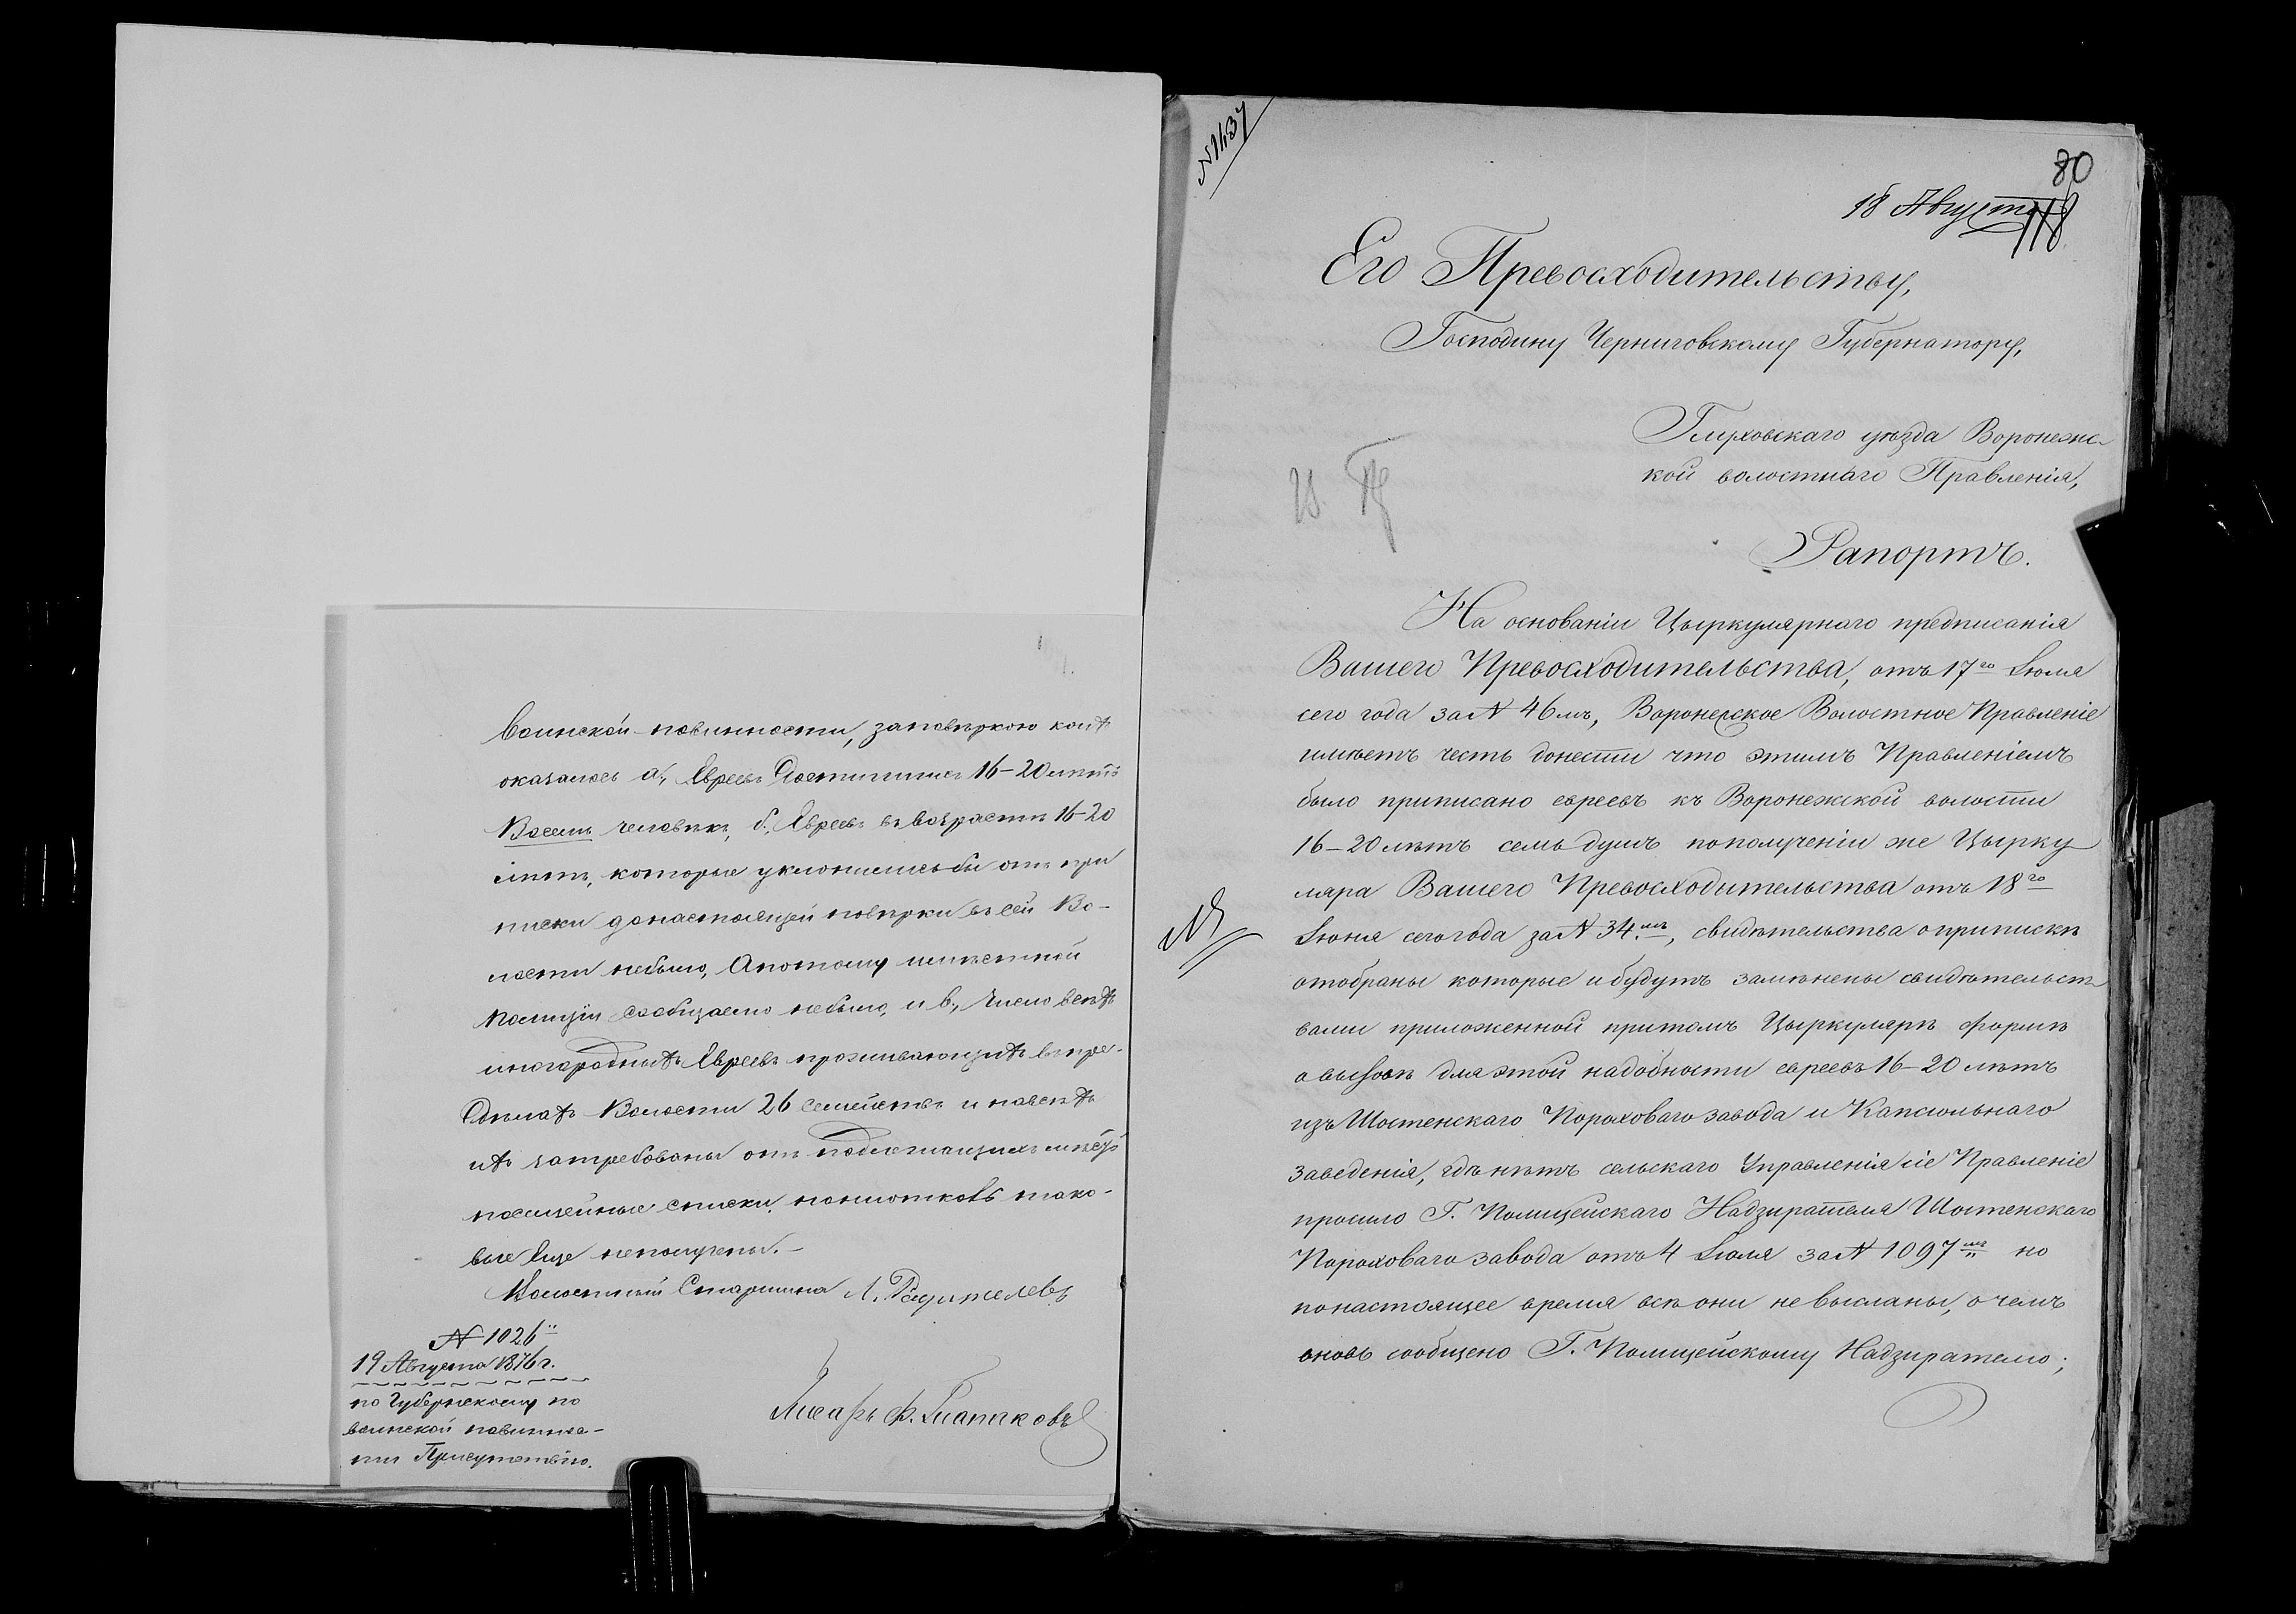 воинской повинности, заповѣркою коихъ
оказалось а., Евреевъ Достигшихъ 16-20 лѣтъ
Восемь человѣкъ, б., Евреевъ въ возрастѣ 16-20
лѣтъ, которые уклонились бы отъ при
писки донастоящей повѣрки въ сей Во-
лости небыло, Апотому мѣстной
полиціи сообщаемо небыло, и в., Число всѣхъ
иногородныхъ Евреевъ проживающихъ въ пре-
дѣлахъ Волости 26 семействъ и навсѣхъ
ихъ затребованы отъ подлежащихъ мѣстъ
посемейные списки, нониоткобъ тако-
вые Еще неполучены.-
Волостный Старшина Л.
N 1026
19 Августа 1876 г.
по Губернскому по
воинской повинно-
сти Присутствію.
Писарь Ф.
N 1437
80
18 Августа
118
Его Превосходительству,
Господину Черниговскому Губернатору,
Глуховскаго уѣзда Воронежс-
кой волостнаго Правленія,
Рапортъ.
На основаніи Цыркулярнаго предписанія
Вашего Превосходительства, отъ 17го Іюля
сего года за N 46мъ, Воронежское Волостное Правленіе
имѣетъ честь донести что этимъ Правленіемъ
было приписано евреевъ къ Воронежской волости
16-20 лѣтъ семь душъ пополученіи же Цырку
ляра Вашего Превосходительства отъ 18го
Іюня сегогода за N 34.мъ, свидѣтельства о припискѣ
отобраны которые и будутъ замѣнены свидѣтельст-
вами приложенной притомъ Цыркулярѣ формѣ
о вызовѣ для этой надобности евреевъ 16-20 лѣтъ
изъ Шостенскаго Пороховаго завода и Капсюльнаго
Заведенія, гдѣ нѣтъ сельскаго Управленія сіе Правленіе
просило Г. Полицейскаго Надзирателя Шостенскаго
Пороховаго завода отъ 4 Іюля за N 1097мъ но
понастоящее время всѣ они не высланы, о чемъ
вновь сообщено Г. Полицейскому Надзирателю;